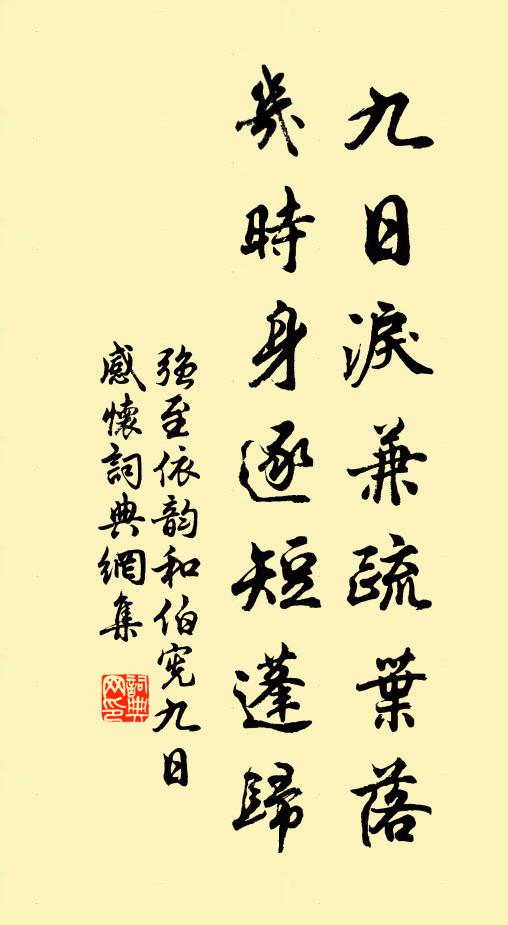 九日淚兼疏葉落
幾時身逐短蓬歸
強至依韵和伯宪九日
感懷詞典網集
詞典
网印